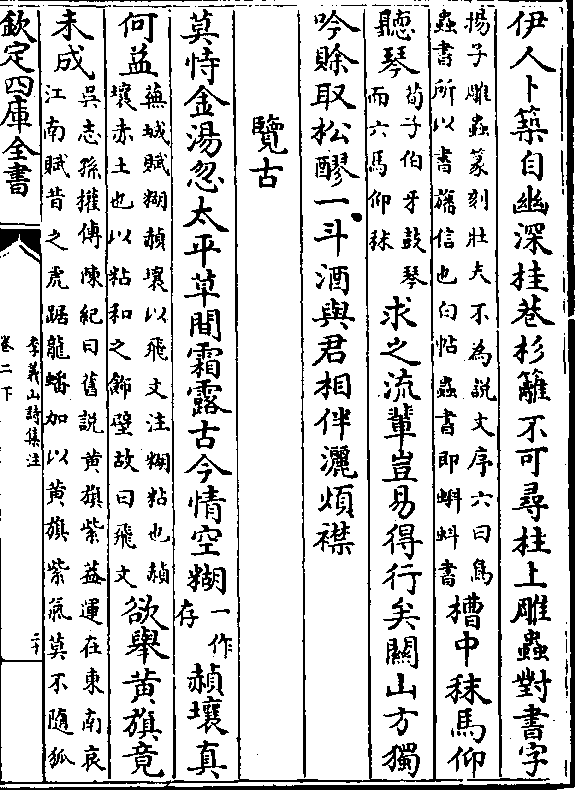 伊人卜築自幽深挂巷杉籬不可尋柱上雕蟲對書字
揚子雕蟲篆刻壯夫不為說文序六曰鳥
蟲書所以書旛信也白帖蟲書即蝌蚪書
槽中秣馬仰
聽琴
荀子伯牙鼓琴
而六馬仰秣
求之流輩豈易得行矣關山方獨
吟賒取松醪一斗酒與君相伴灑煩襟
覽古
莫恃金湯忽太平草間霜露古今情空糊
一作
存
赬壤真
何益
蕪城賦糊赬壤以飛文注糊粘也赬
壤赤土也以粘和之飾壁故曰飛文
欲舉黃旗竟
未成
吳志孫權傳陳紀曰舊説黃旗紫蓋運在東南哀
江南賦昔之虎踞龍蟠加以黃旗紫氣莫不隨狐
欽定四庫全書
李義山詩集注
卷二下
二十